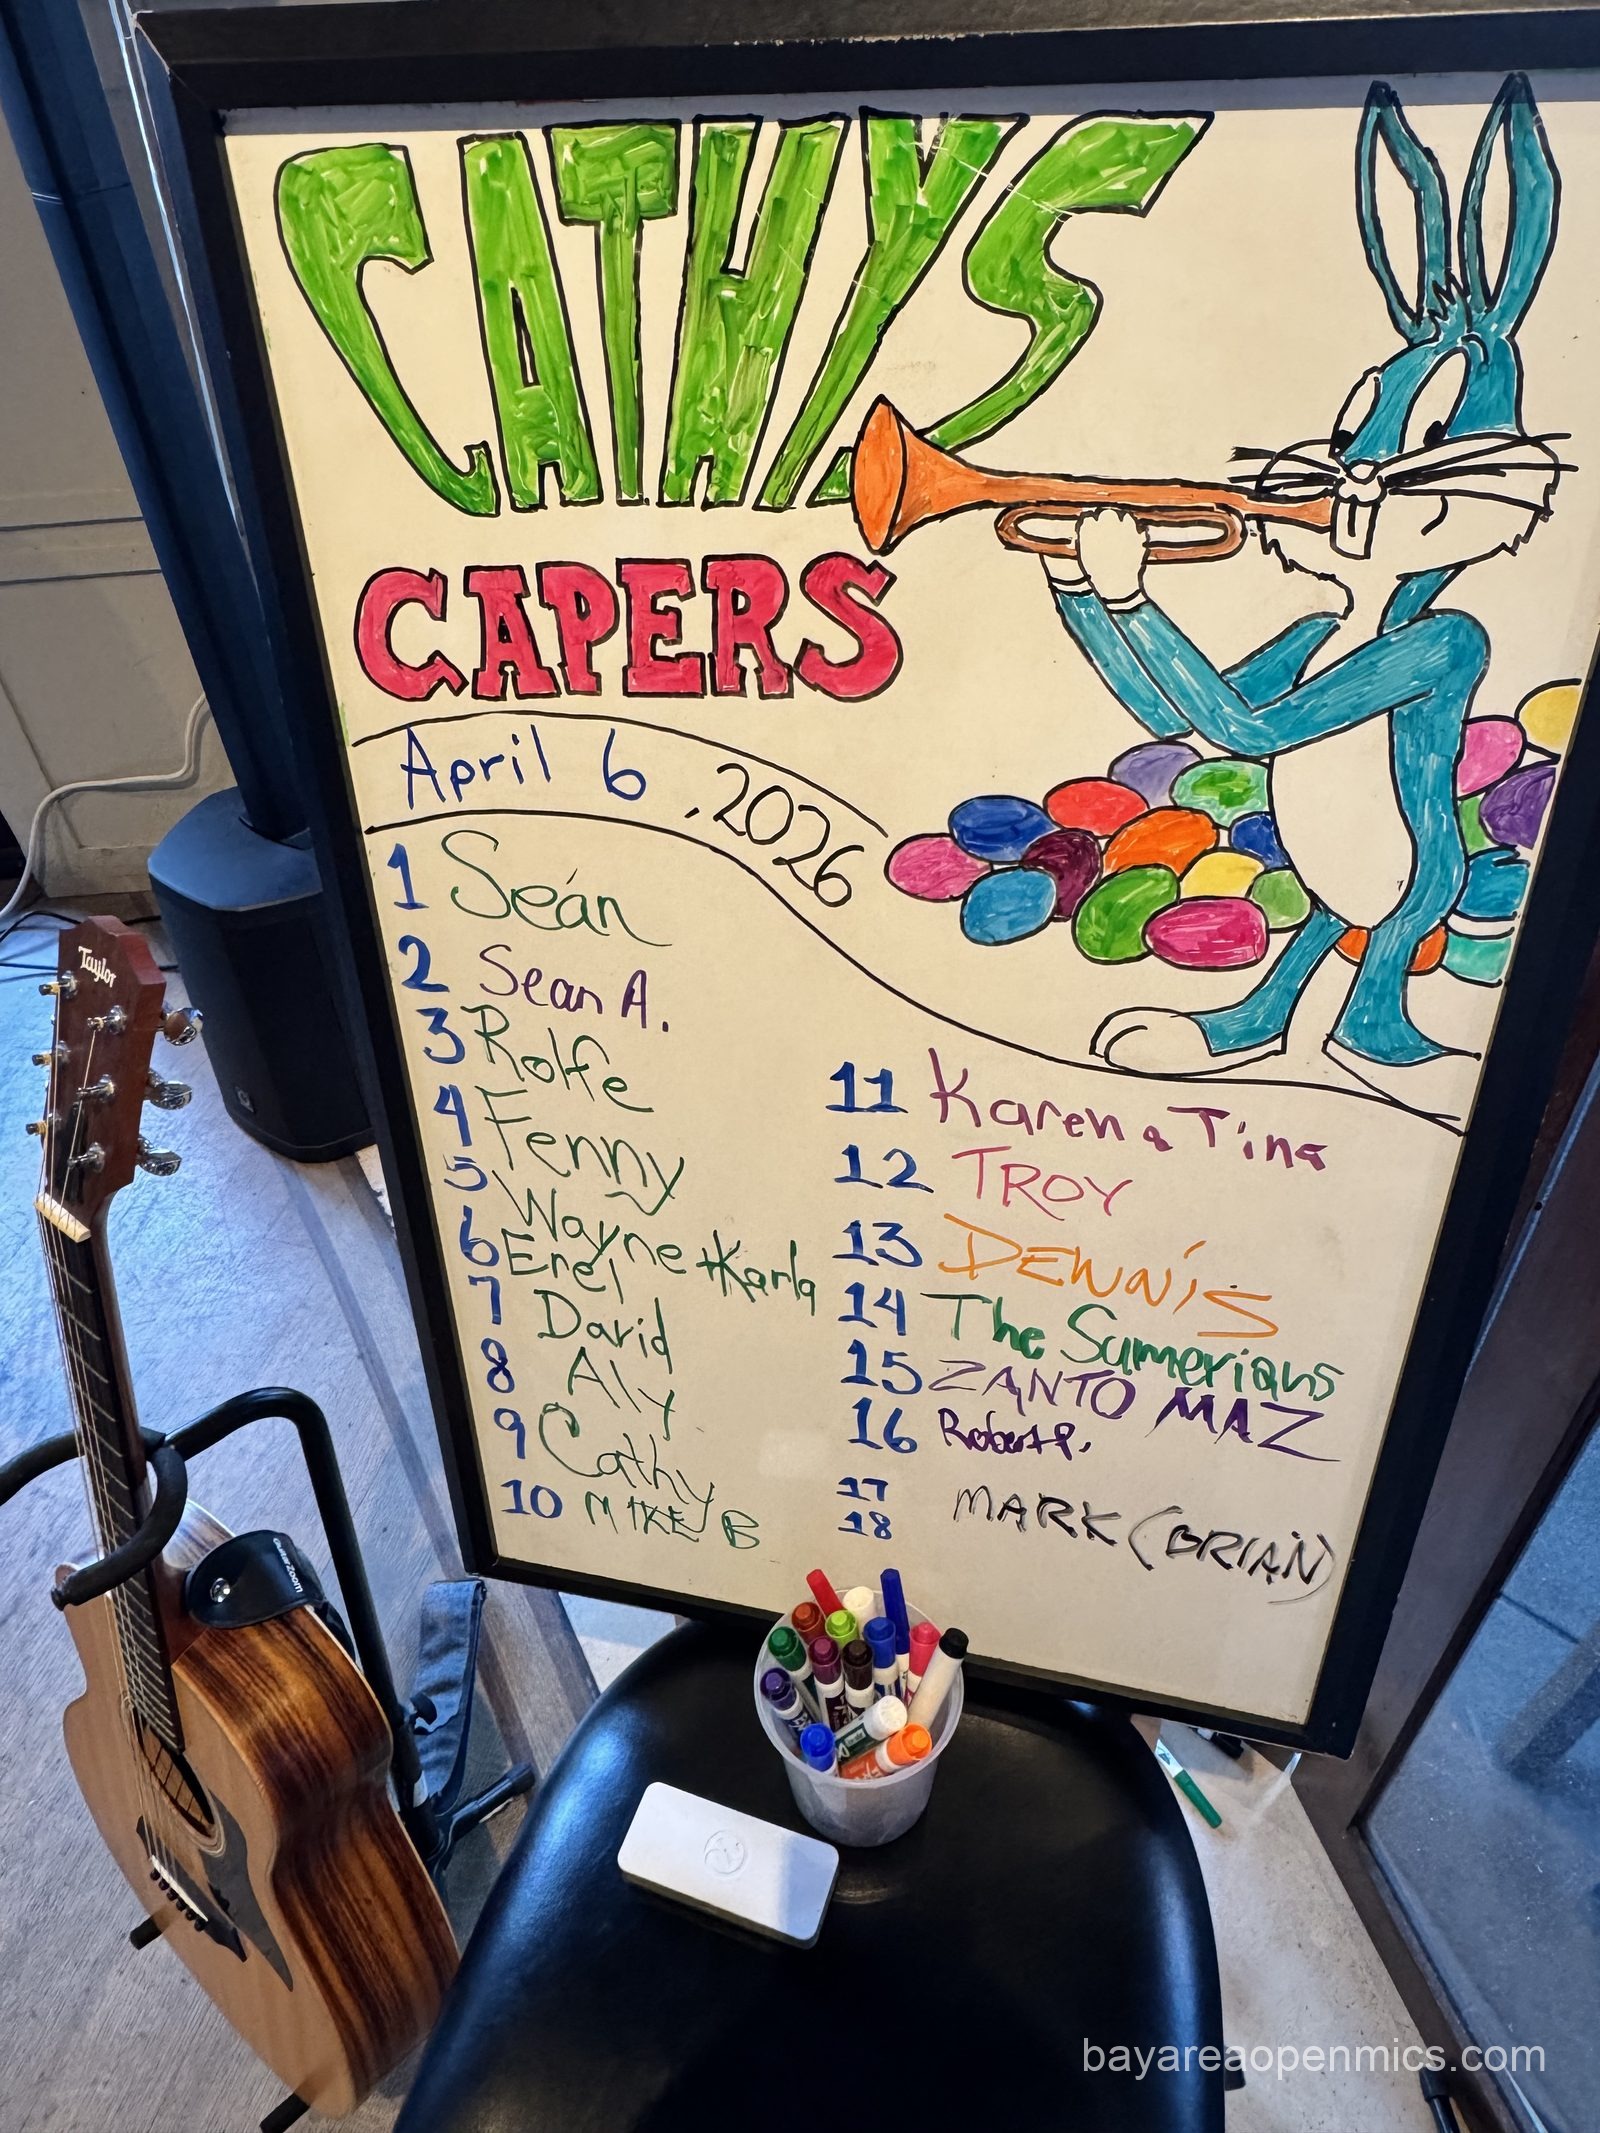 CATHYS
CAPERS
April 6, 2026
1 Seán
2 Sean A.
3 Rolfe
4 Fenny
5 Wayne + Karla
6 Erel
7 David
8 Aly
9 Cathy
10 MIKE B
11 Karen & Tina
12 TROY
13 DENNIS
14 The Sumerians
15 ZANTO MAZ
16 Robert P.
17
18 MARK (BRIAN)
Taylor
GuitarZoom
bayareaopenmics.com